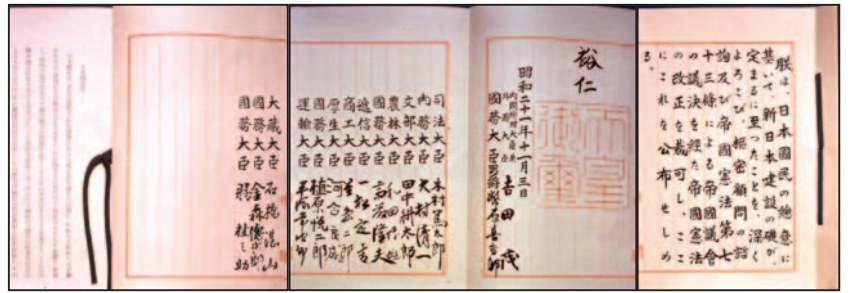 朕は、日本國民の總意に
基いて、新日本建設の礎が、
定まるに至つたことを、深く
よろこび、樞密顧問の諮
詢及び帝國憲法第七
十三條による帝國議會
の議決を経た帝國憲法
の改正を裁可し、ここ
にこれを公布せしめ
る。
裕仁
天皇御璽
昭和二十一年十一月三日
内閣總理大臣兼
外務大臣 吉田茂
國務大臣 男爵幣原喜重郎
司法大臣 木村篤太郎
内務大臣 大村清一
文部大臣 田中耕太郎
農林大臣 和田博雄
國務大臣 斎藤隆夫
逓信大臣 一松定吉
商工大臣 星島二郎
厚生大臣 河合良成
國務大臣 植原悦二郎
運輸大臣 平塚常次郎
大藏大臣 石橋湛山
國務大臣 金森徳次郎
國務大臣 膳桂之助